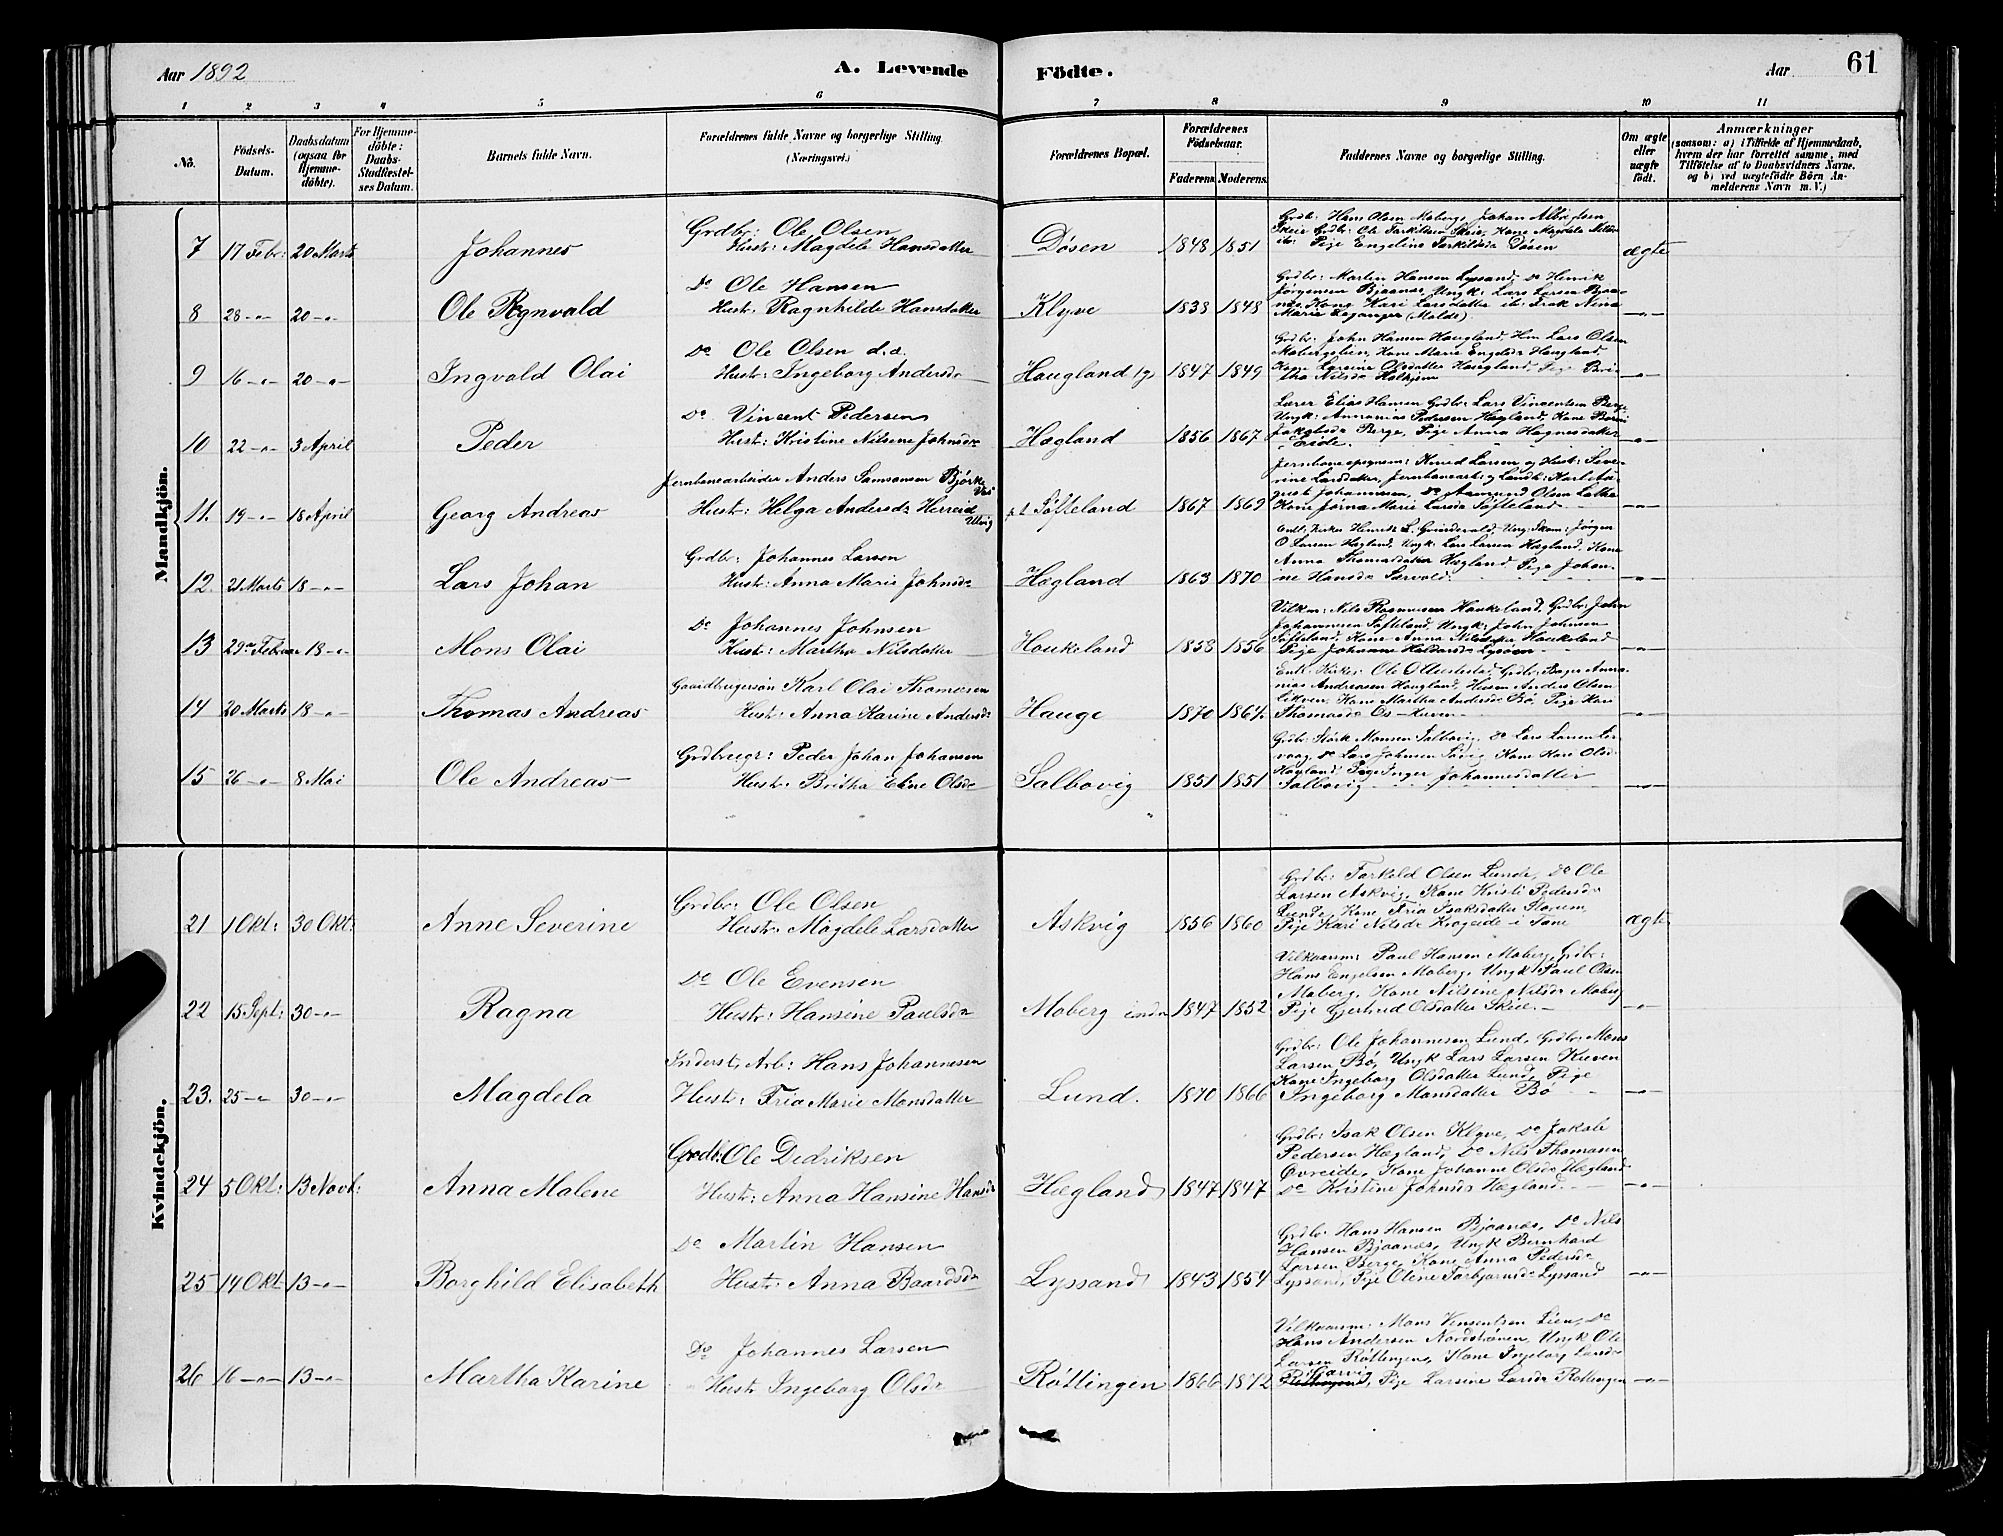 Aar 1892
A. Levende
Födte.
Aar
61
1 2 3 4 5 6 7 8 9 10 11
No.
Födsels-
Datum.
Daabsdatum
(ogsaa for
Hjemme-
döbte).
For Hjemme-
döbte:
Daabs-
Stadfæstel-
ses Datum.
Barnets fulde Navn.
Forældrenes fulde Navne og borgerlige Stilling.
(Næringsvei.)
Forældrenes Bopæl.
Forældrenes
Födselsaar.
Faderens. Moderens.
Faddernes Navne og borgerlige Stilling.
Om ægte
eller
uægte
födt.
Anmærkninger
(saasom: a) i Tilfælde af Hjemmedaab,
hvem der har forrettet samme, med
Tilföielse af to Daabsvidners Navne,
og b) ved uægtefödte Börn An-
melderens Navn m. V.)
Mandkjön.
7 17 Febr: 20 Marts Johannes
Grdbr: Ole Olsen
Hustr: Magdele Hansdatter
Døsen 1848 1851
Grdb: Hans Olsen Moberg, Johan Albregtsen
Skeie Grdbr: Ole Torkildsen Skeie, Kone Magdela Nilsd
ib: Pige Engeline Torkildsd Døsen
ægte
8 28 -"- 20 -"- Ole Rognvald
Do Ole Hansen
Hustr: Ragnhilde Hansdatter
Klyve 1838 1848
Grdbr: Martin Hansen Lyssand, Do Henrik
Jørgensen Bjaanæs, Ungk: Lars Larsen Bjaa-
næs, Kone Kari Larsdatter ib: Frøk Nina
Marie (Molde)
-"-
9 16 -"- 20 -"- Ingvald Olai
Do Ole Olsen d.a.
Hustr: Ingeborg Andersdr
Haugland 1847 1849
Grdbr: John Hansen Haugland, Hm Lars Olsen
Mobergslien, Kone Marie Engelsdr Haugland
Kone Larsine Olsdatter Haugland, Pige Bri-
tha Nilsdr
-"-
10 22 -"- 3 April Peder
Do Vinsent Pedersen
Hustr: Kristine Nilsene Johnsdr
Hægland 1856 1867
Lærer Elias Hansen Grdbr: Lars Vinsentsen Berge
Ungk: Annanias Pedersen Hægland, Kone
Jakobsdr Berge, Pige Anna Hagnesdatter
Eide.
-"-
11. 19 -"- 18 April Georg Andreas
Jernbanearbeider Anders Samsonsen Bjørke
Vos
Hustr: Helga Andersdr Herreid
Ulvig
p.t Søfteland 1867 1869
Knud Larsen og Hustr: Seve-
rine Larsdatter, Jernbanearb: og Landh: Karl Au-
gust Johannesen, Do Aamund Olsen
Kone Jørna Marie Larsdr Søfteland
-"-
12. 21 Marts 18 -"- Lars Johan
Grdbr: Johannes Larsen
Hustr: Anna Marie Johnsdr
Hægland 1863 1870
Henrik L. Grindevold, Ung: Skom: Jørgen
O Larsen Hægland, Ungk: Lars Larsen Hægland, Kone
Anna Thomasdatter Hægland, Pige Johan-
ne Hansdr Særvold.
-"-
13 29de Februar 18 -"- Mons Olai
Do Johannes Johnsen
Hustr: Martha Nilsdatter
Haukeland 1858 1856
Vilkm: Nils Rasmusen Haukeland, Grdbr: John
Johannesen Søfteland, Ungk: John Johnsen
Søfteland, Kone Anna Nilsdatter Haukeland
Pige Johanne Haldorsdr Lysøen
-"-
14 20 Marts 18 -"- Thomas Andreas
Gaardbrugersøn Karl Olai Thomesen
Hustr: Anna Karine Andersdr
Hauge 1870 1864
Enk: Kirkes: Ole O Grdbr: Anna-
nias Andreasen Haugland, Anders Olsen
Kone Martha Andersdr Bø, Pige Kari
Thomasdr Os-Kuven
-"-
15 26 -"- 8 Mai Ole Andreas
Grdbrugr: Peder Johan Johansen
Hustr: Britha Eline Olsdr
Salbovig 1851 1851
Grdbr: Størk Monsen Salbovig, Do Lars Larsen
vaag, Do Lars Johnsen Søvig, Kone Kari Olsdr
Hægland Pige Inger Johannesdatter
Salbovig
-"-
Kvindekjön.
21 1 Okt: 30 Okt: Anne Severine
Grdbr: Ole Olsen
Hustr: Magdele Larsdatter
Askvig 1856 1860
Grdbr: Torkeld Olsen Lunde, Do Ole
Larsen Askvig, Kone Kristi Pedersdr
Lunde, Kone Fria Isaksdatter Storum,
Pige Kari Nilsdr Krogeide i Fane
ægte
22 15 Sept: 30 -"- Ragna
Do Ole Evensen
Hustr: Hansine Paulsdr
Moberg indre 1847 1852
Vilkaarm: Paul Hansen Moberg, Grbr:
Hans Engelsen Moberg, Ungk: Paul Olsen
Moberg, Kone Nilsine Nilsdr Moberg
Pige Gjertrud Olsdatter Skeie.
-"-
23. 25 -"- 30 -"- Magdela
Inderst, Arb: Hans Johannesen
Hustr: Fria Marie Monsdatter
Lund. 1870 1866
Grdbr: Ole Johannesen Lund, Grdbr: Mons
Larsen Bø, Ungk Lars Larsen Kuven
Kone Ingeborg Olsdatter Lund, Pige
Ingeborg Monsdatter Bø
-"-
24 5 Okt: 13 Novb: Anna Malene
Grdb: Ole Didriksen
Hustr: Anna Hansine Hansdr
Hægland 1847 1847
Grdbr: Isak Olsen Klyve, Do Jakob
Pedersen Hægland, Do Nils Thomasen
Øvreide, Kone Johanne Olsdr Hægland
Do Kristine Johnsdr Hægland.
-"-
25 14 Okt 13 -"- Borghild Elisabeth
Do Martin Hansen
Hustr: Anna Baardsdr
Lyssand 1843 1854
Grdbr: Hans Hansen Bjaanæs, Do Nils
Hansen Bjaanæs, Ungk Bernhard
Larsen Berge, Kone Anna Pedersdr
Lyssand, Pige Olene Torbjørnsdr Lyssand
-"-
26 16 -"- 13 -"- Martha Karine
Do Johannes Larsen
Hustr Ingeborg Olsdr
Røttingen 1866 1872
Vilkaarm: Mons Vinsentsen Lien, Do
Hans Andersen Nordstrønen, Ungk Ole
Larsen Røttingen, Kone Ingeborg
Pige Larsine Larsdr Røttingen
-"-